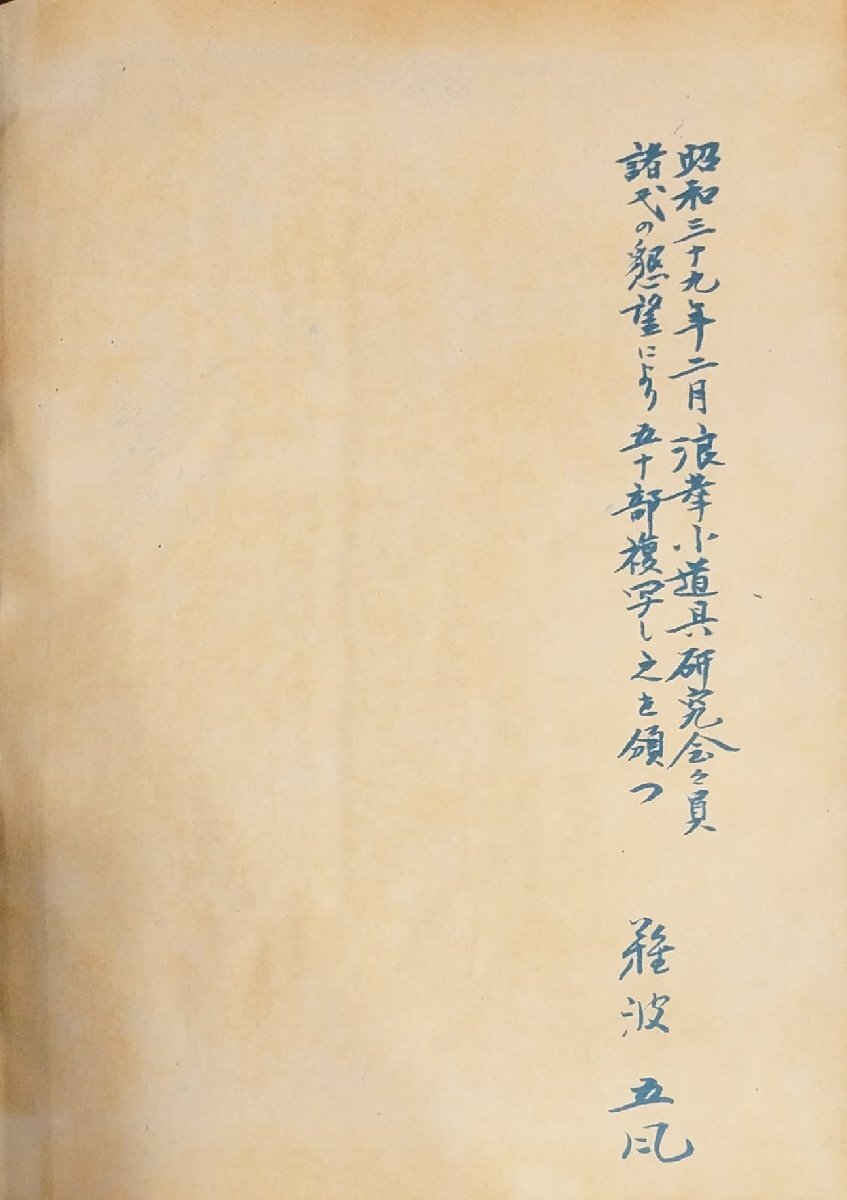 昭和三十九年二月浪華小道具研究会々員
諸氏の懇望により五十部複写し之を頒つ
難波
五